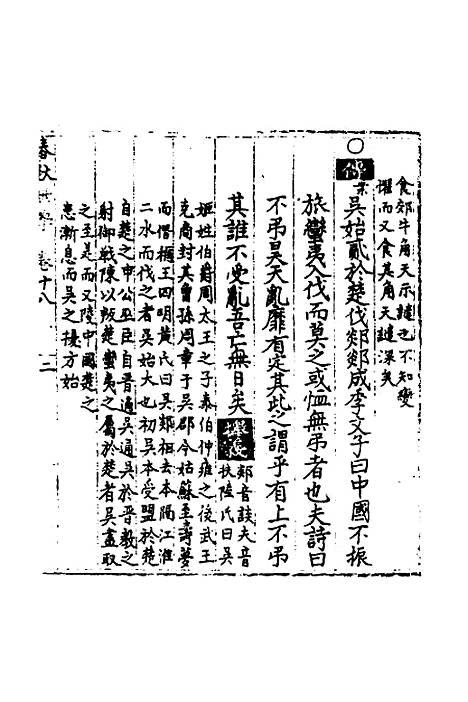 食郊牛角天示譴也不知變
懼而又食其角天譴深矣
傳 吳始貳於楚伐郯郯成季文子曰中國不振
旅蠻夷入伐而莫之或恤無弔者也夫詩曰
不弔昊天亂靡有定其此之謂乎有上不弔
其誰不受亂吾亡無日矣
郯音談夫音
扶陸氏曰吳
姬姓伯爵周太王之子泰伯仲雍之後武王
克商封其曾孫周章于吳郡今姑蘇至壽夢
而僭稱王四明黃氏曰吳郯相去本隔江淮
二水而伐之者吳始大也初吳本受盟於楚
自楚之申公巫臣自晉通吳通吳於晉教之
射御戰陳以叛楚蠻夷之屬於楚者吳盡取
之至是而又陵中國楚之
患漸息而吳之擾方始
春秋 卷十八 二